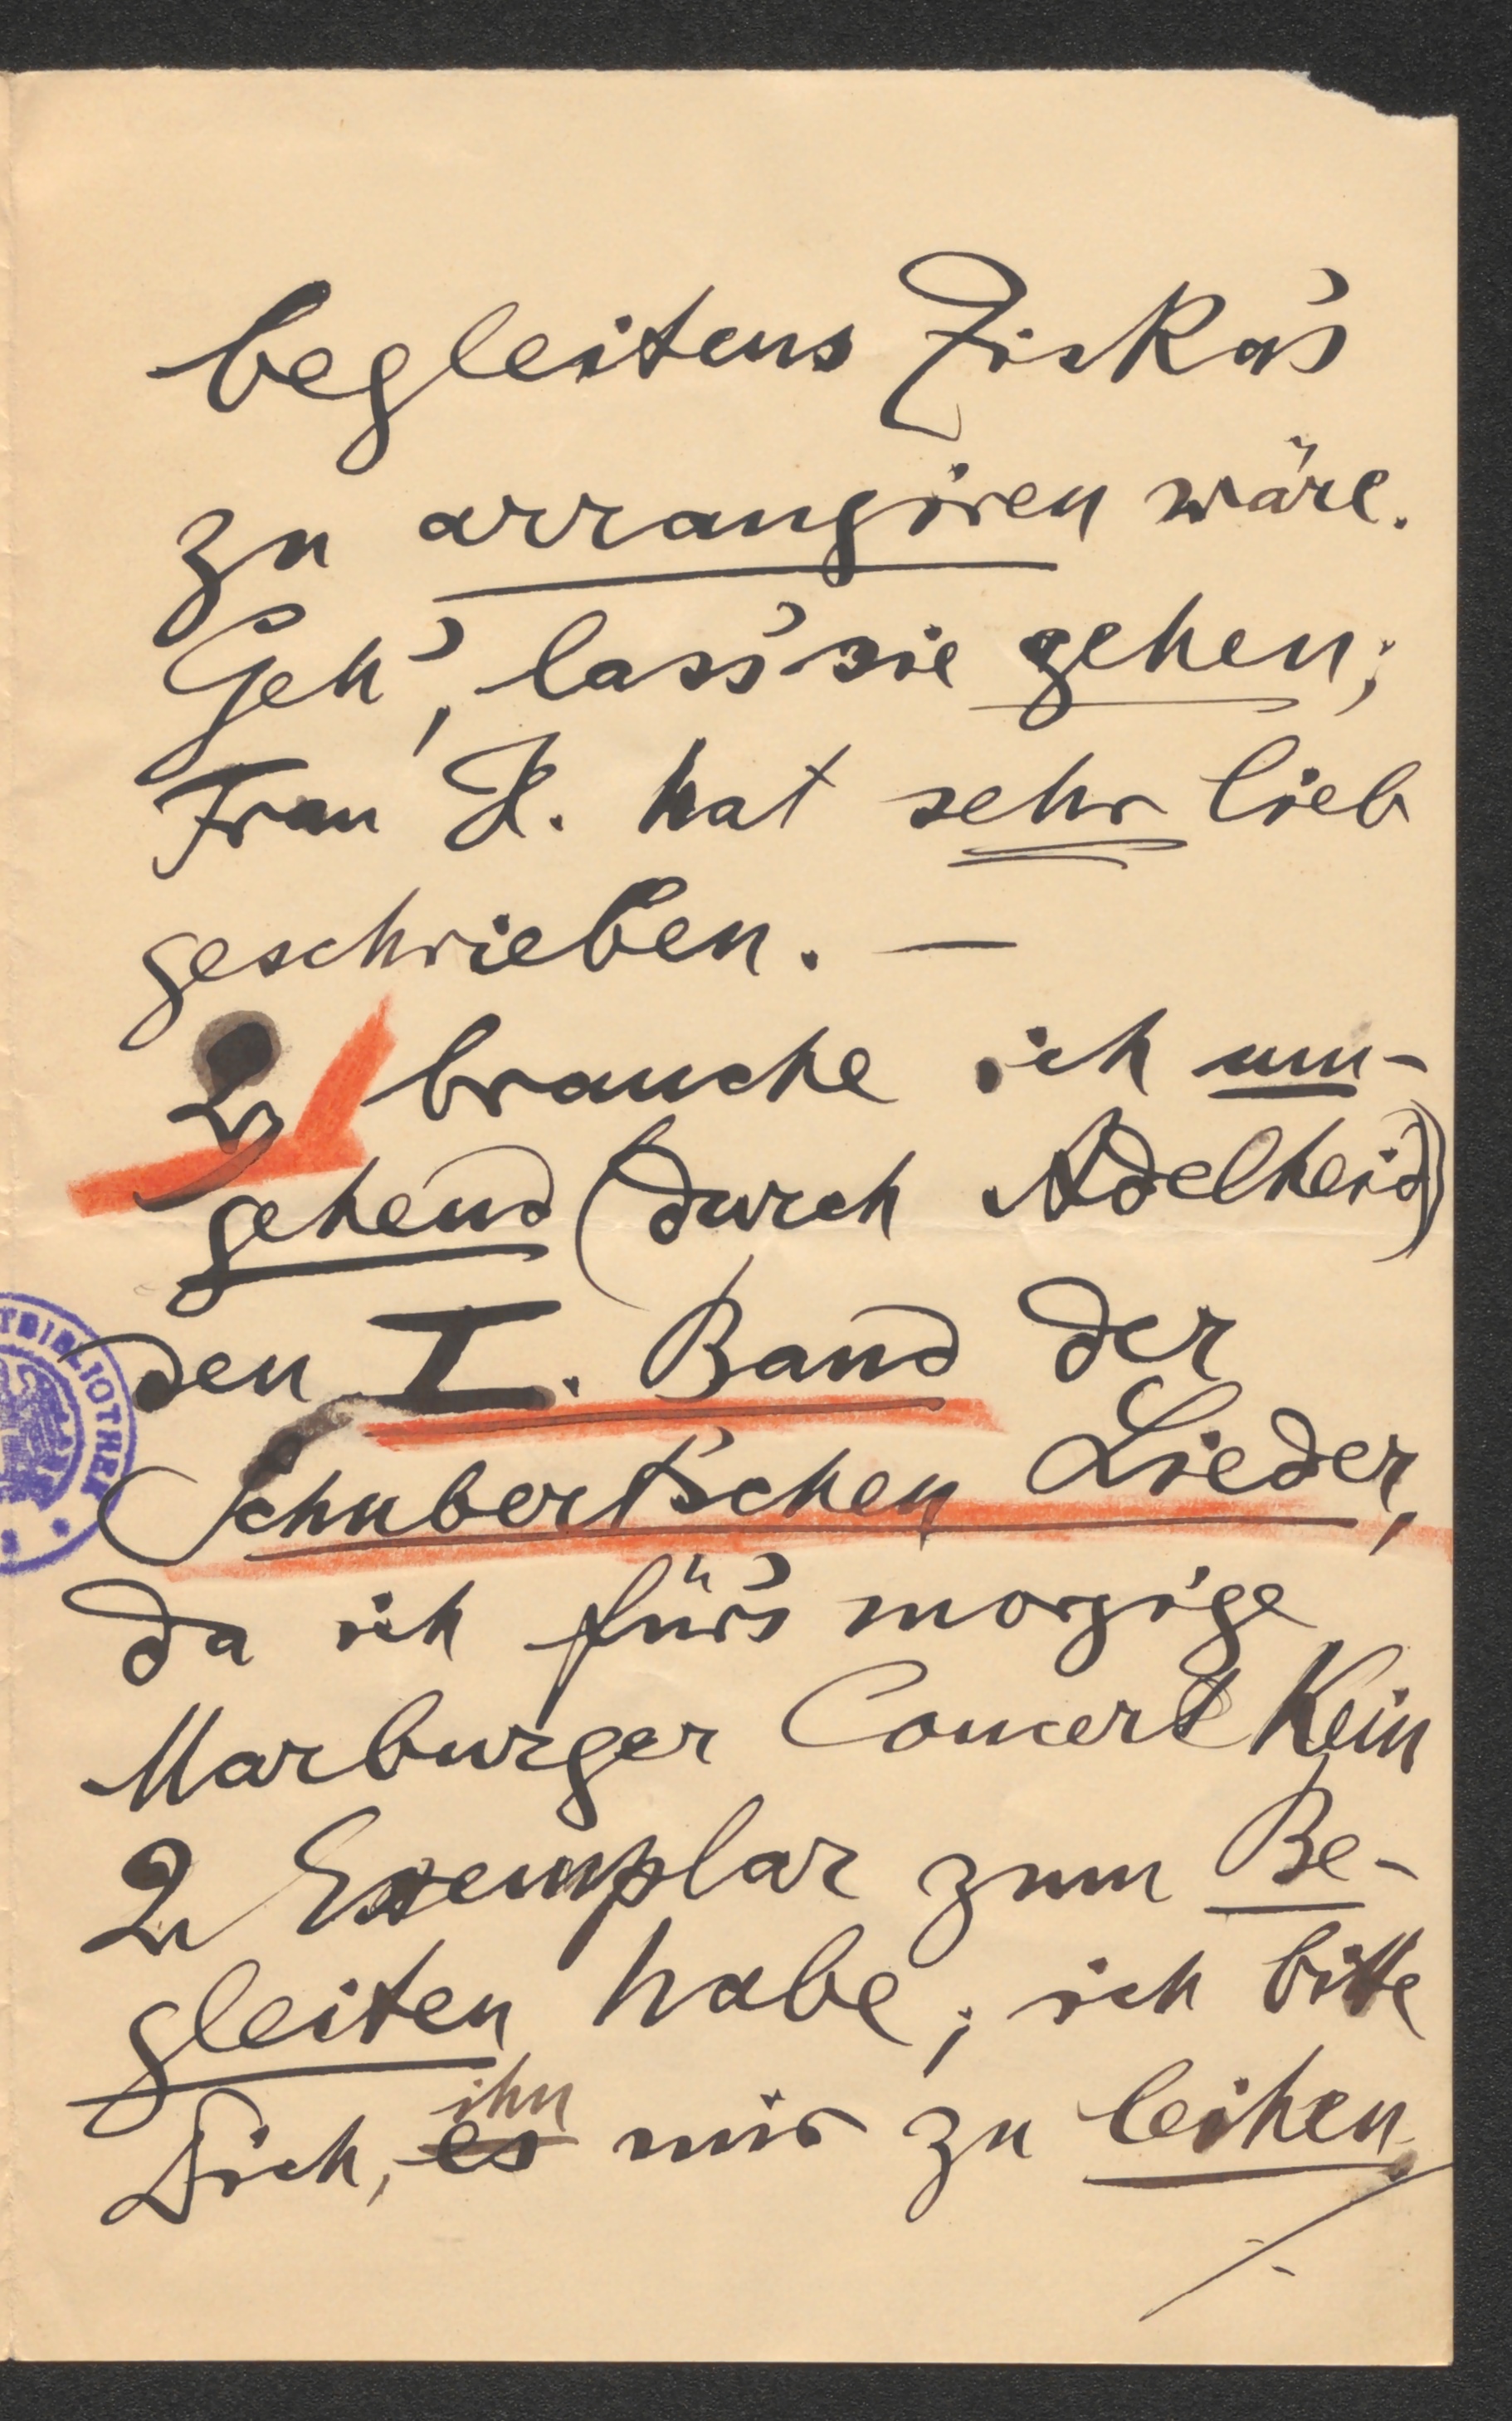 begleitens Ziska's
zu arrangiren wäre.
Geh', lass' sie gehen;
Frau K. hat sehr lieb
geschrieben. —
2 brauche ich um-
gehend (durch Adelheid)
den I. Band der
Schubert'schen Lieder,
da ich für's morgige
Marburger Concert kein
2 Exemplar zum Be-
gleiten habe; ich bitte
Dich, es ihn mir zu leihen
TBIBLIOTHEK